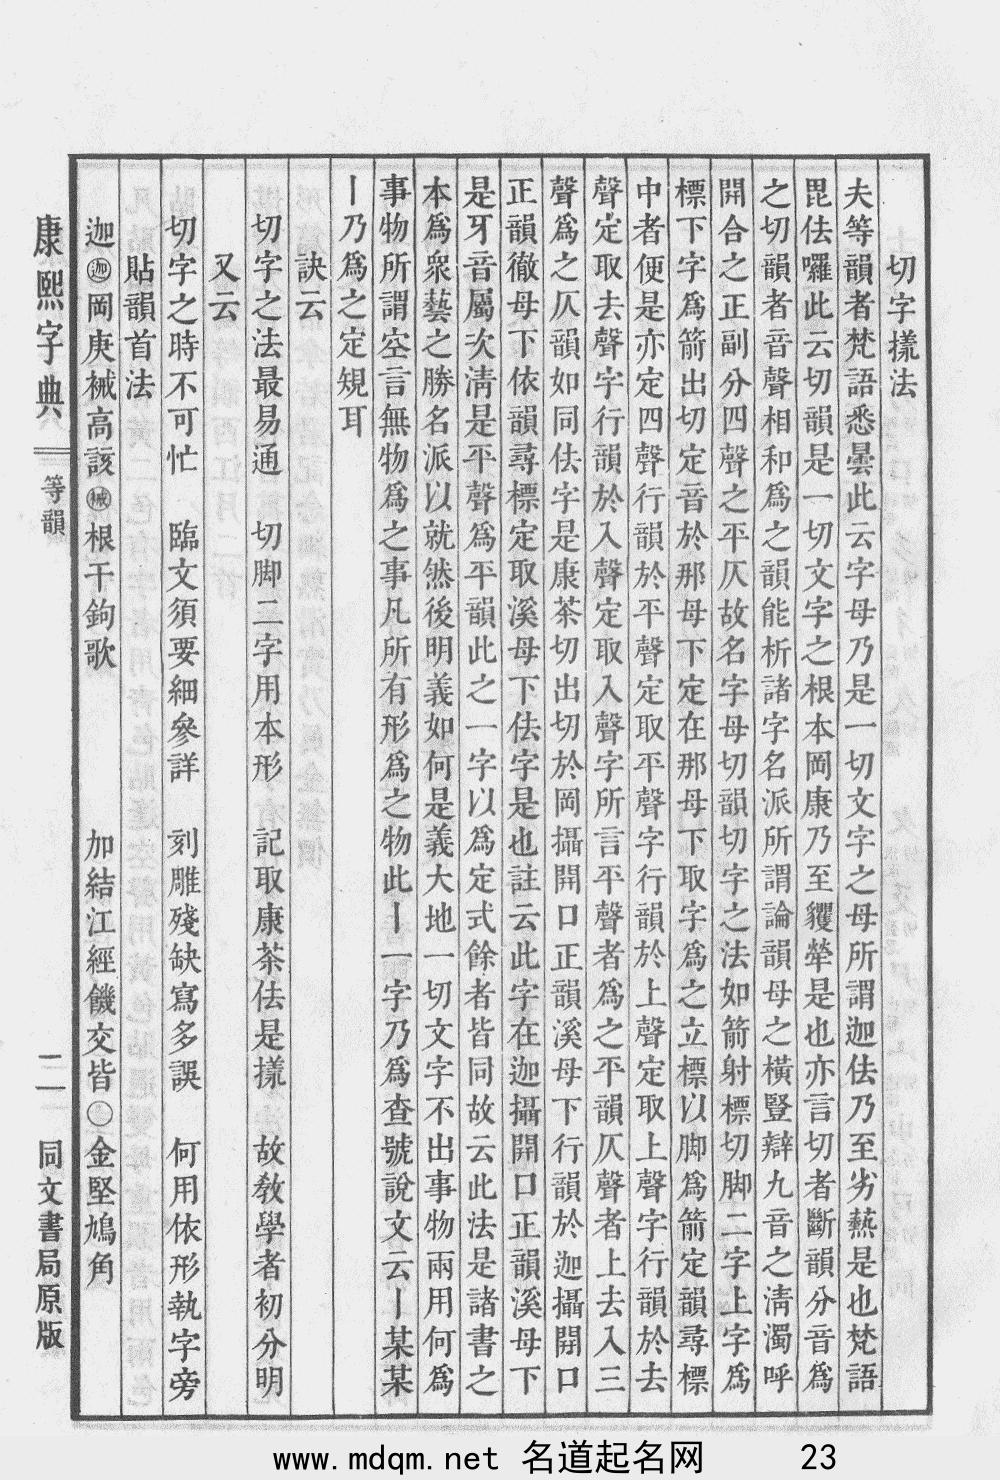 切字㨾法
夫等韻者梵語悉曇此云字母乃是一切文字之母所謂迦佉乃至劣爇是也梵語
毘佉囉此云切韻是一切文字之根本岡康乃至玃犖是也亦言切者斷韻分音爲
之切韻者音聲相和爲之韻能析諸字名派所謂論韻母之橫豎辯九音之淸濁呼
開合之正副分四聲之平仄故名字母切韻切字之法如箭射標切脚二字上字爲
標下字爲箭出切定音於那母下定在那母下取字爲之立標以脚爲箭定韻尋標
中者便是亦定四聲行韻於平聲定取平聲字行韻於上聲定取上聲字行韻於去
聲定取去聲字行韻於入聲定取入聲字所言平聲者爲之平韻仄聲者上去入三
聲爲之仄韻如同佉字是康茶切出切於岡攝開口正韻溪母下行韻於迦攝開口
正韻徹母下依韻尋標定取溪母下佉字是也註云此字在迦攝開口正韻溪母下
是牙音屬次淸是平聲爲平韻此之一字以爲定式餘者皆同故云此法是諸書之
本爲衆藝之勝名派以就然後明義如何是義大地一切文字不出事物兩用何爲
事物所謂空言無物爲之事凡所有形爲之物此丨一字乃爲查號說文云丨某某
丨乃爲之定規耳
訣云
切字之法最易通　切脚二字用本形　記取康茶佉是㨾　故敎學者初分明
又云
切字之時不可忙　臨文須要細參詳　刻雕殘缺寫多誤　何用依形執字旁
貼韻首法
迦㊣岡庚祴高該㊣根干鉤歌　加結江經饑交皆〇金堅鳩角
康熙字典　等韻　二一　同文書局原版
www.mdqm.net 名道起名网 23